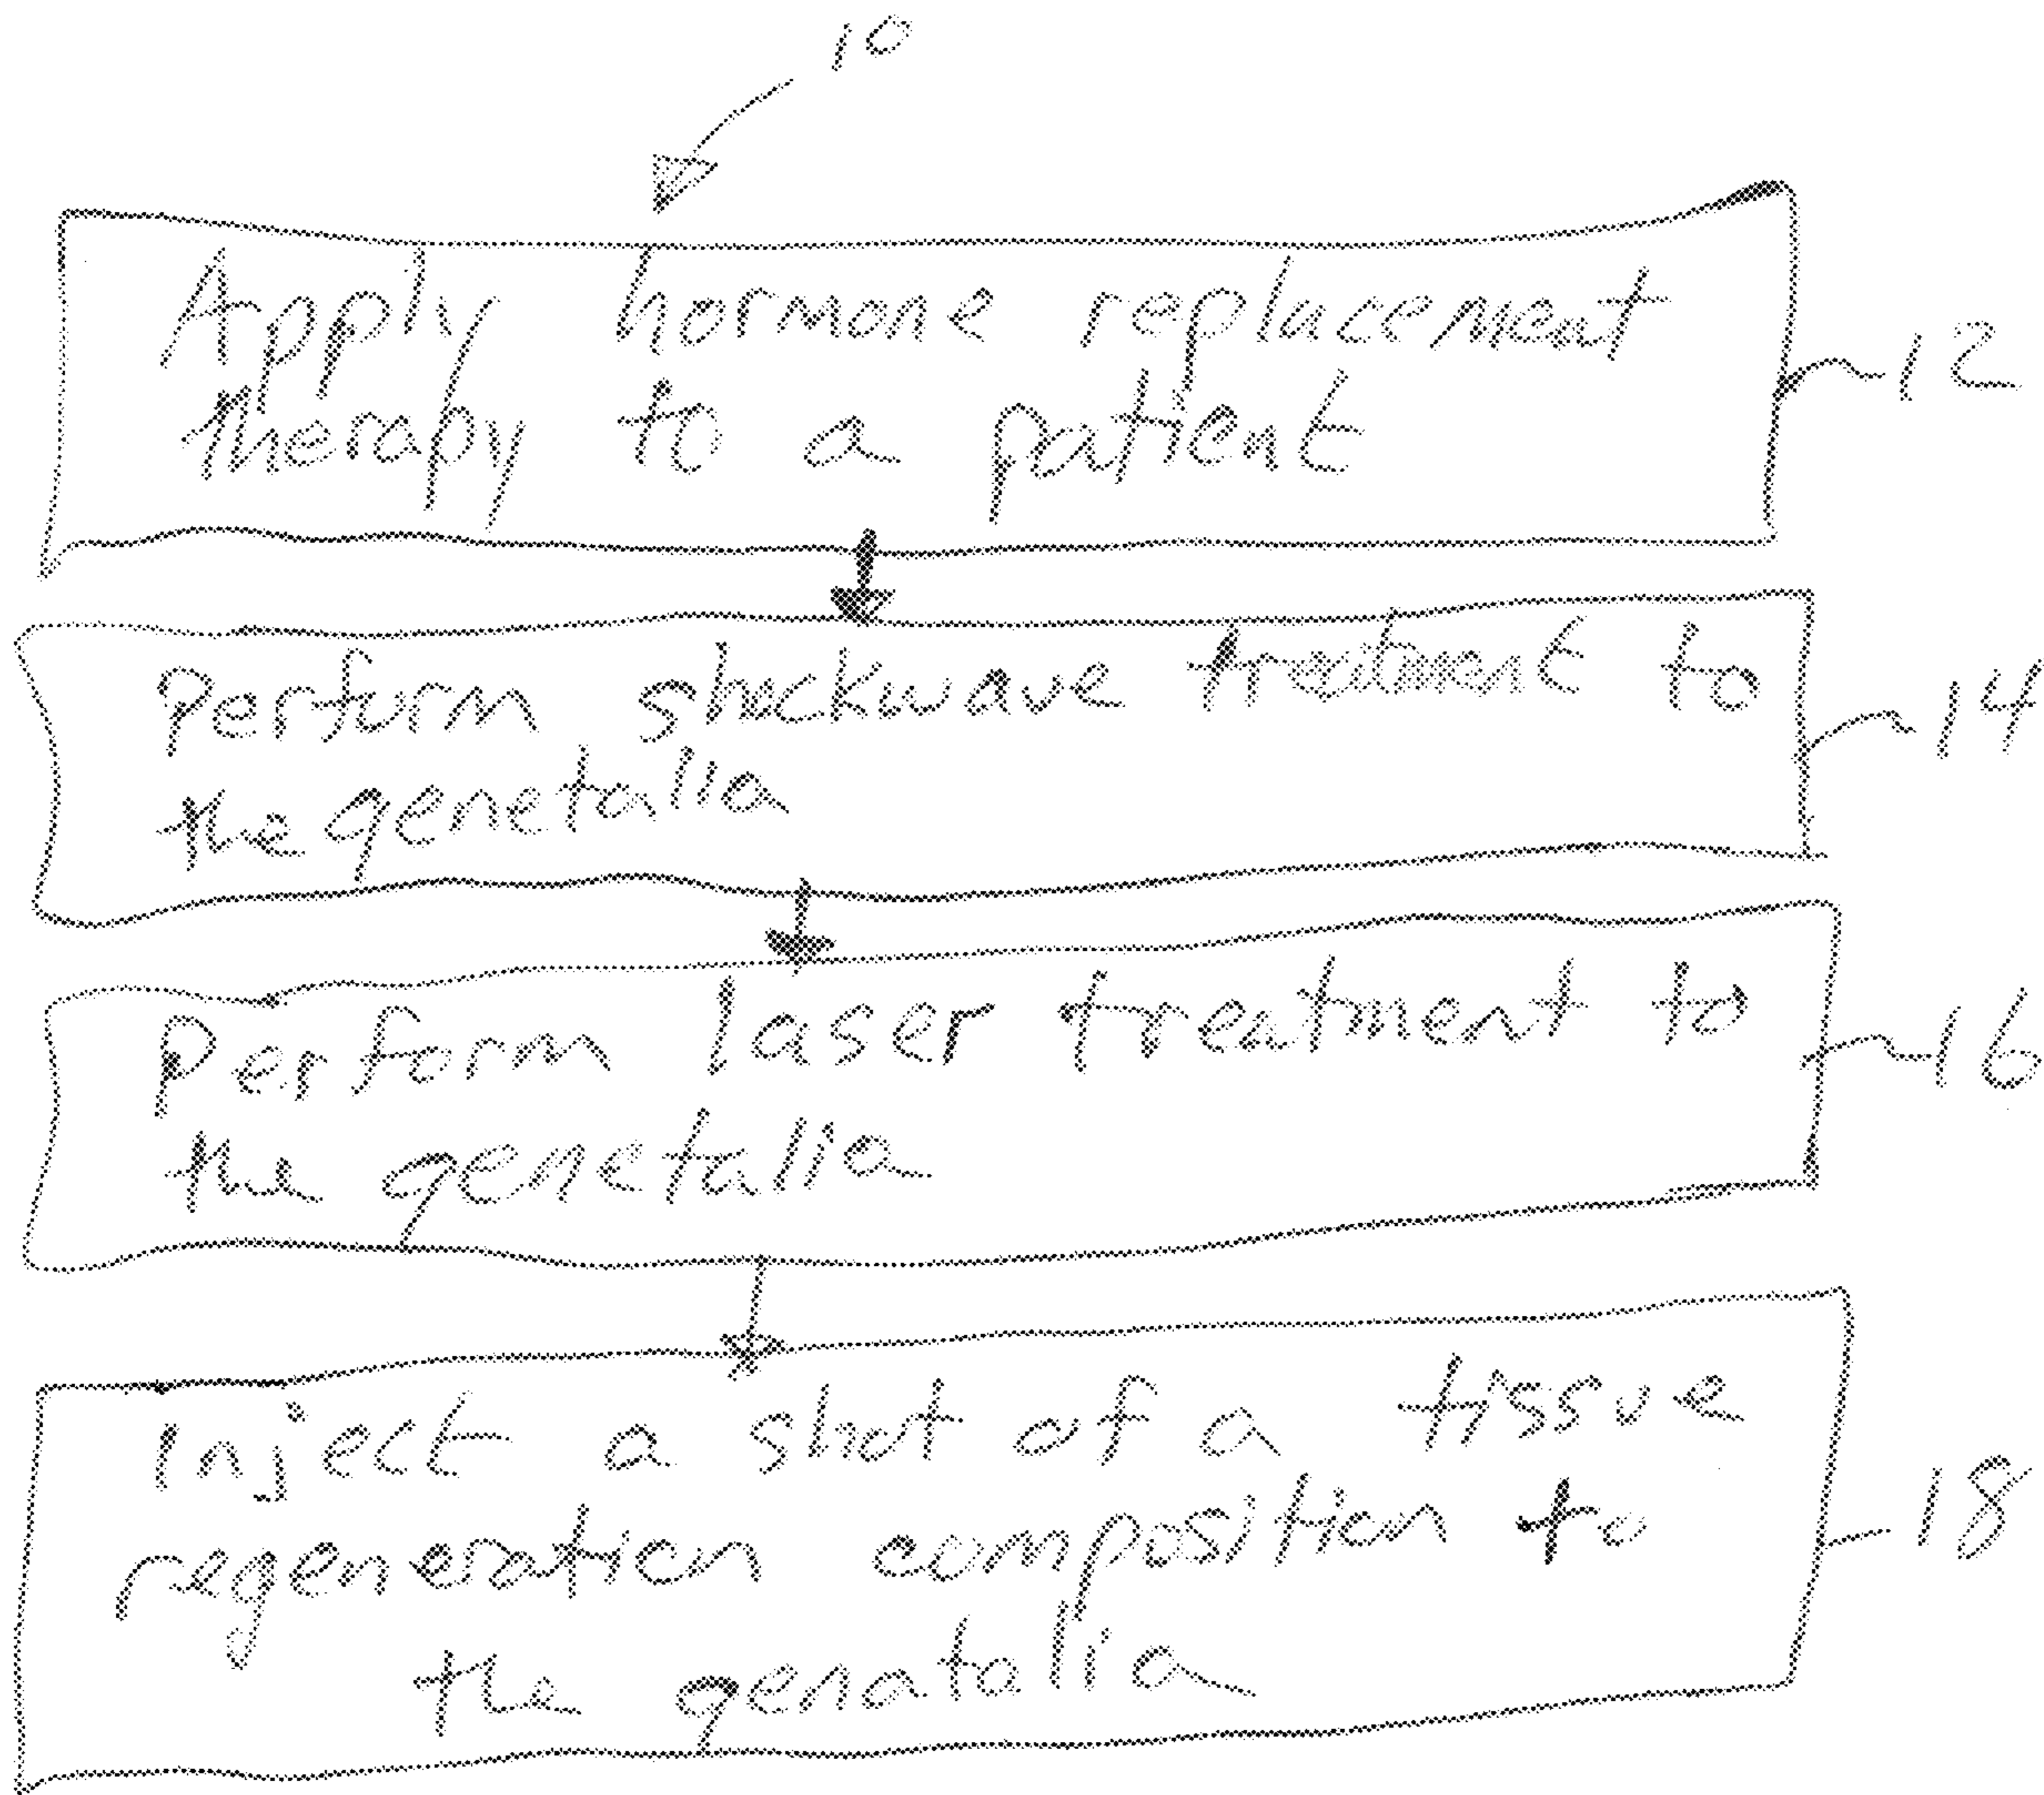 10
Apply hormone replacement
therapy to a patient
12
Perform shockwave treatment to
the genetalia
14
Perform laser treatment to
the genetalia
16
Inject a shot of a tissue
regeneration composition to
the genatalia
18